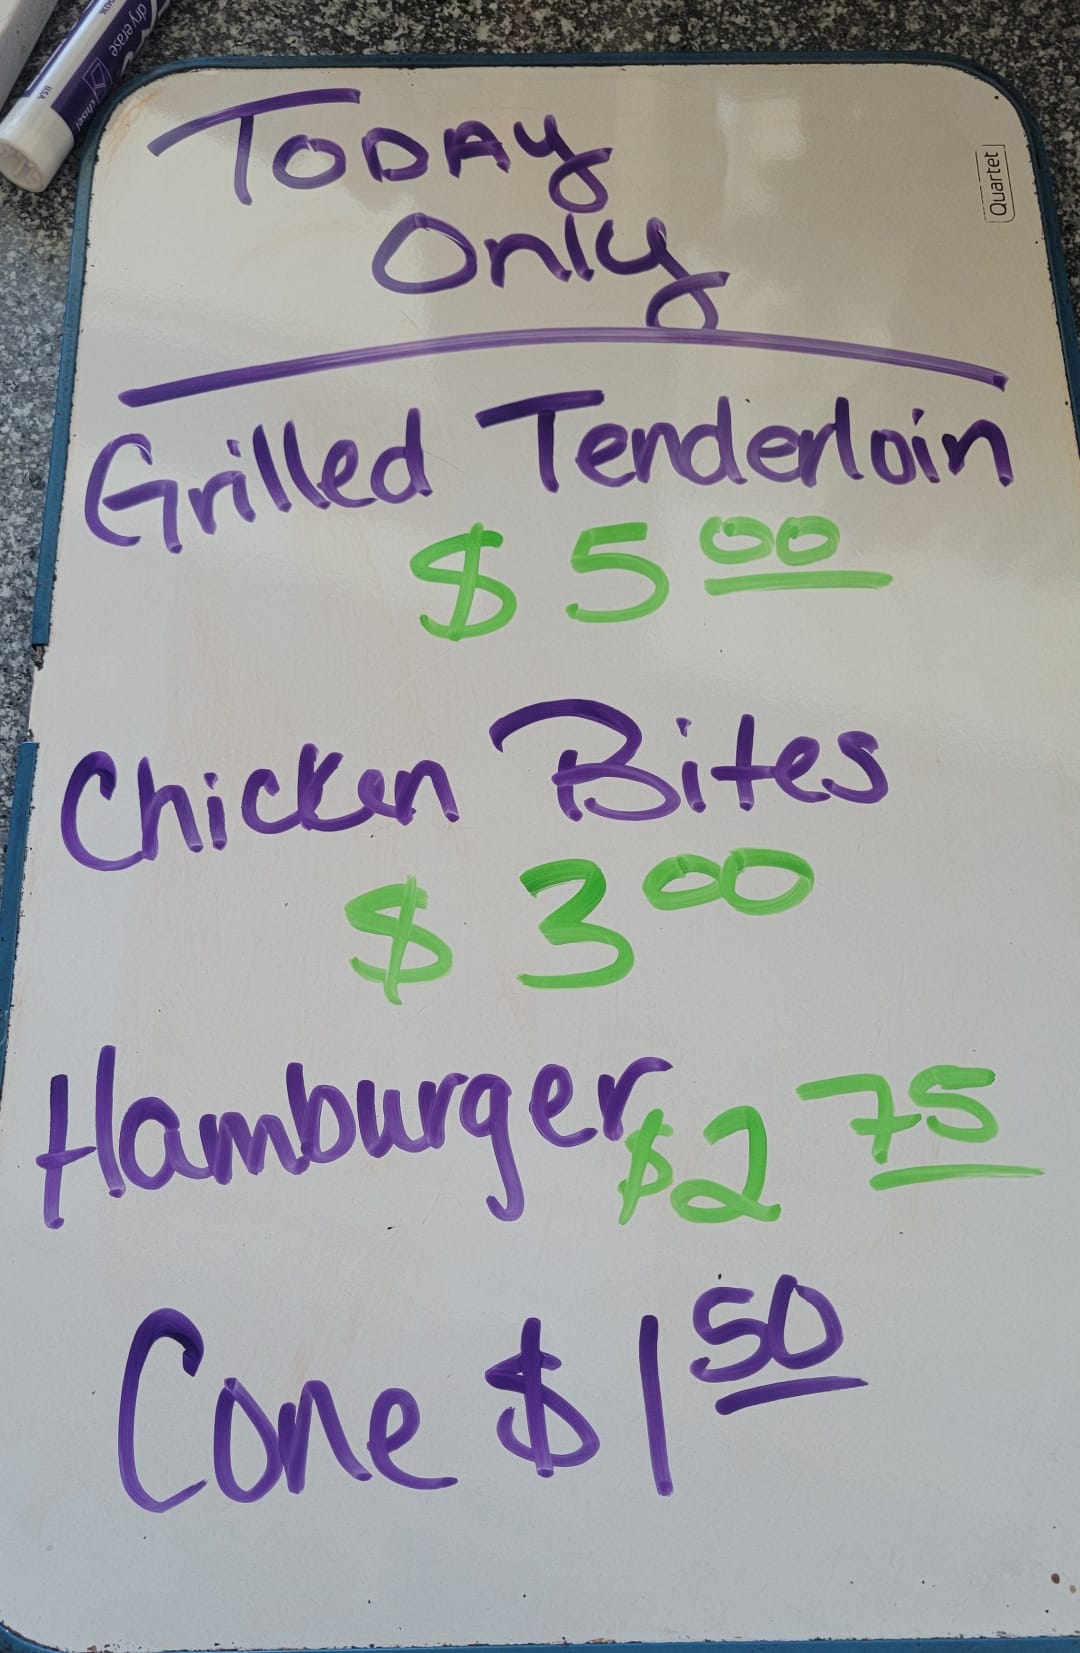 TODAY
Only
Quartet
Grilled Tenderloin
$ 5 00
Chicken Bites
$ 3 00
Hamburger $2 75
Cone $1 50
dry erase
chisel
USA